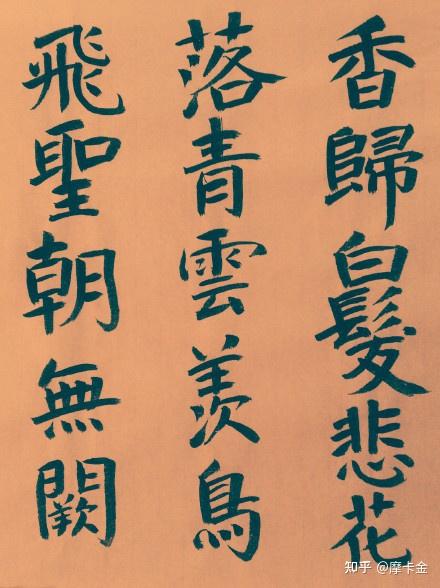 香歸白髮悲花
落青雲羨鳥
飛聖朝無闕
知乎 @摩卡金